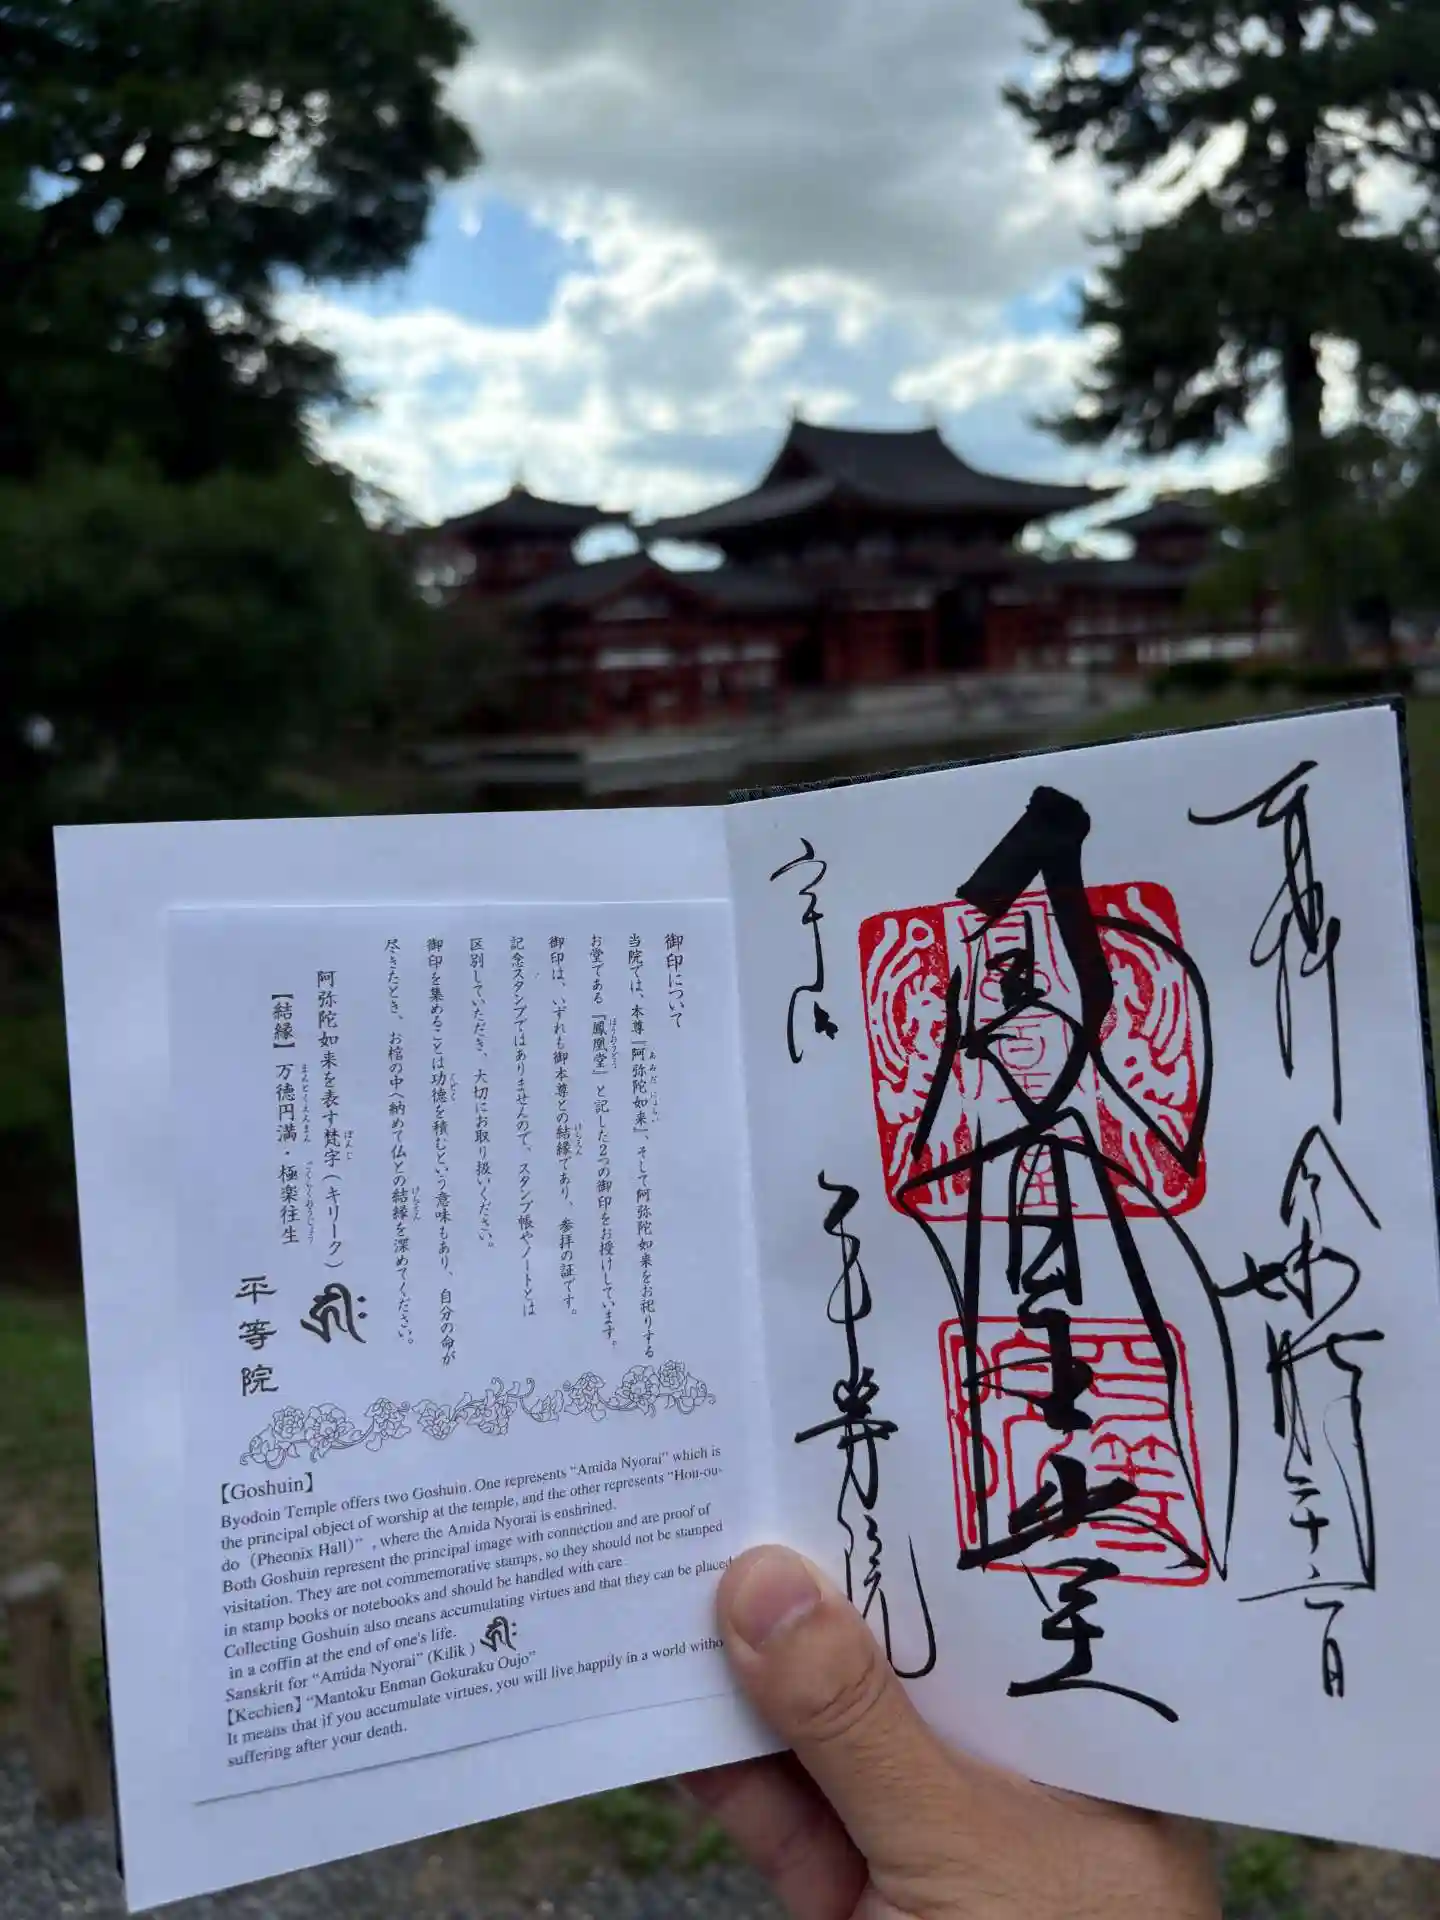 御印について
当院では、本尊『阿弥陀如来』、そして阿弥陀如来をお祀りする
お堂である『鳳凰堂』と記した2つの御印をお授けしています。
御印は、いずれも御本尊との結縁であり、参拝の証です。
記念スタンプではありませんので、スタンプ帳やノートとは
区別していただき、大切にお取り扱いください。
御印を集めることは功徳を積むという意味もあり、自分の命が
尽きたとき、お棺の中へ納めて仏との結縁を深めてください。
阿弥陀如来を表す梵字(キリーク)
【結縁】万徳円満・極楽往生
平等院
【Goshuin】
Byodoin Temple offers two Goshuin. One represents “Amida Nyorai” which is
the principal object of worship at the temple, and the other represents “Hou-ou-
do (Pheonix Hall)” , where the Amida Nyorai is enshrined.
Both Goshuin represent the principal image with connection and are proof of
visitation. They are not commemorative stamps, so they should not be stamped
in stamp books or notebooks and should be handled with care.
Collecting Goshuin also means accumulating virtues and that they can be placed
in a coffin at the end of one's life.
Sanskrit for “Amida Nyorai” (Kilik )
【Kechien】“Mantoku Enman Gokuraku Oujo”
It means that if you accumulate virtues, you will live happily in a world witho
suffering after your death.
奉拝
鳳凰堂
宇治
平等院